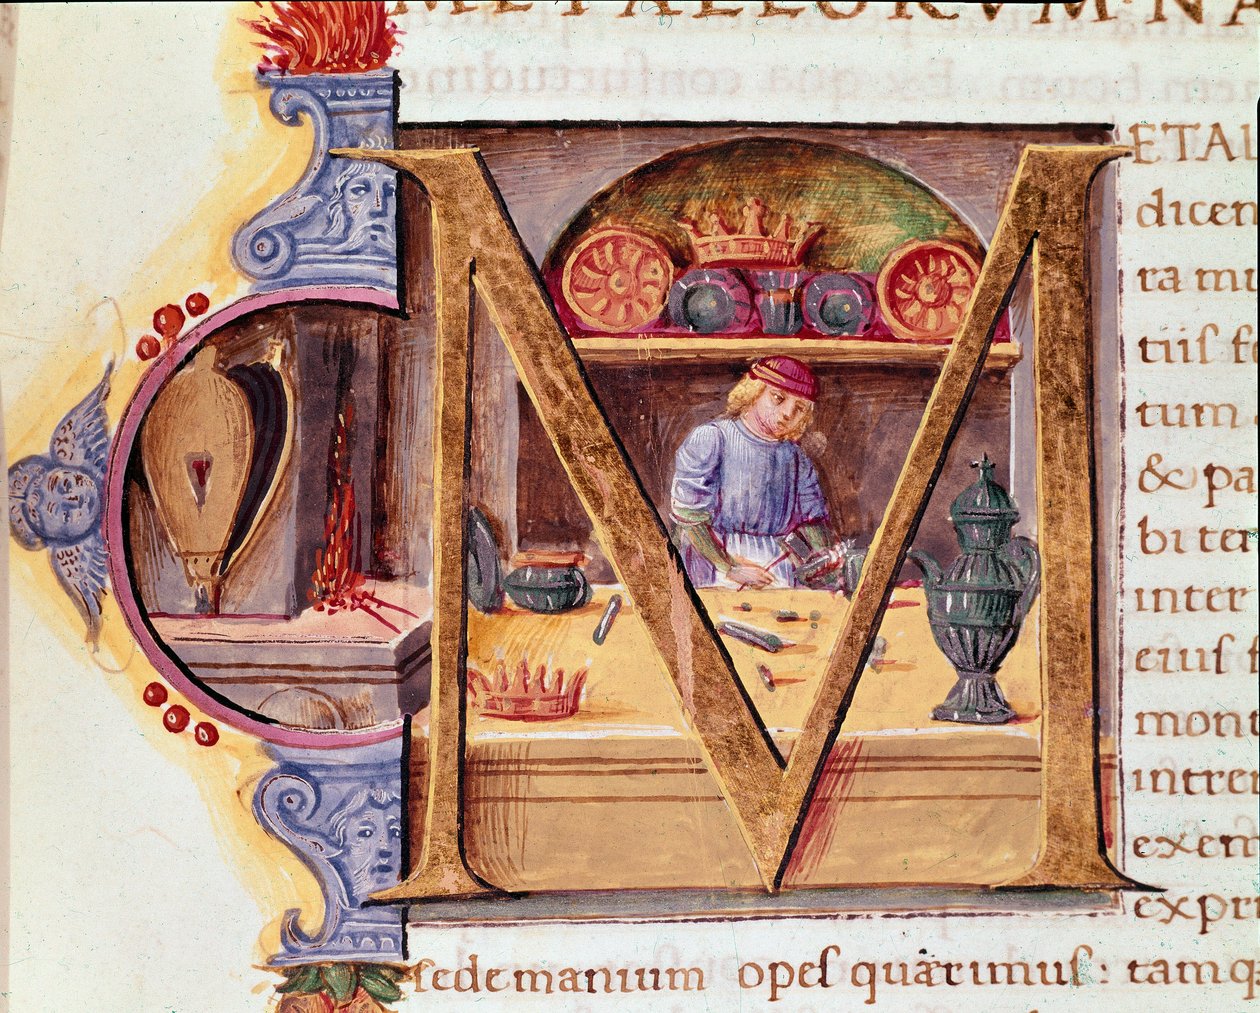 METALLORVM·NA
METAL
dicen
ra mu
tiiſ fe
tum.
& pa
bi ter
inter
eiuſ t
mono
intrem
exem
expri
ſede manium opeſ quærimuſ: tamq